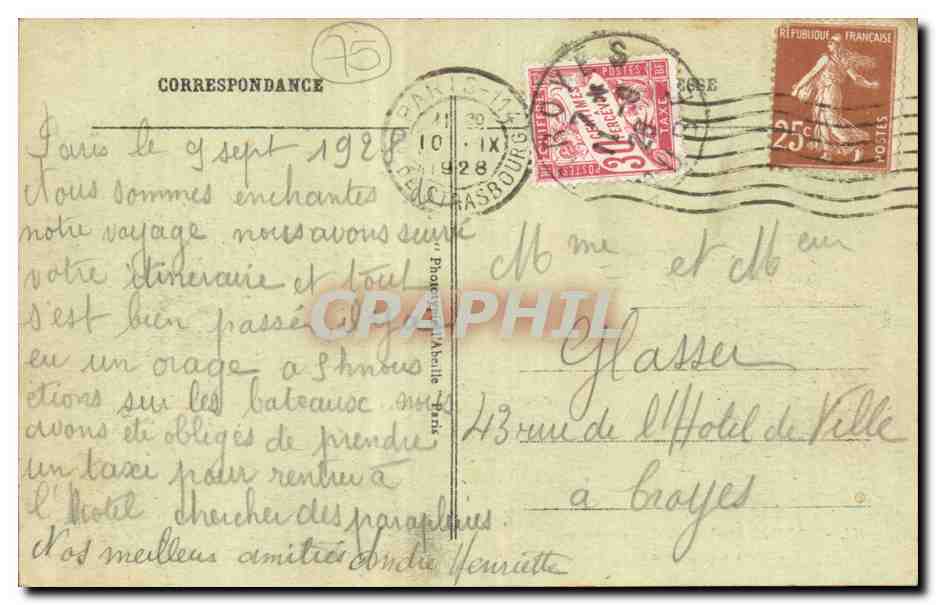 75
CORRESPONDANCE
RÉPUBLIQUE FRANÇAISE
25c
POSTES
CHIFFRE
POSTES
RF
TAXE
30 CENTIMES
À PERCEVOIR
POSTES
TROYES
PARIS-114
10 IX
1928
STRASBOURG
Paris le 9 sept 1928
Nous sommes enchantes de
notre voyage nous avons suivi
votre itineraire et tout
s'est bien passé il y a
eu un orage a 5h nous
etions sur les bateaux nous
avons ete obligés de prendre
un taxi pour rentrer à
l'hotel chercher des parapluies.
Nos meilleurs amitiés Andre Henriette
" Phototypie l'Abeille " Paris
Mme et Meur
Glasser
43 rue de l'Hotel de Ville
à Troyes
CPAPHIL